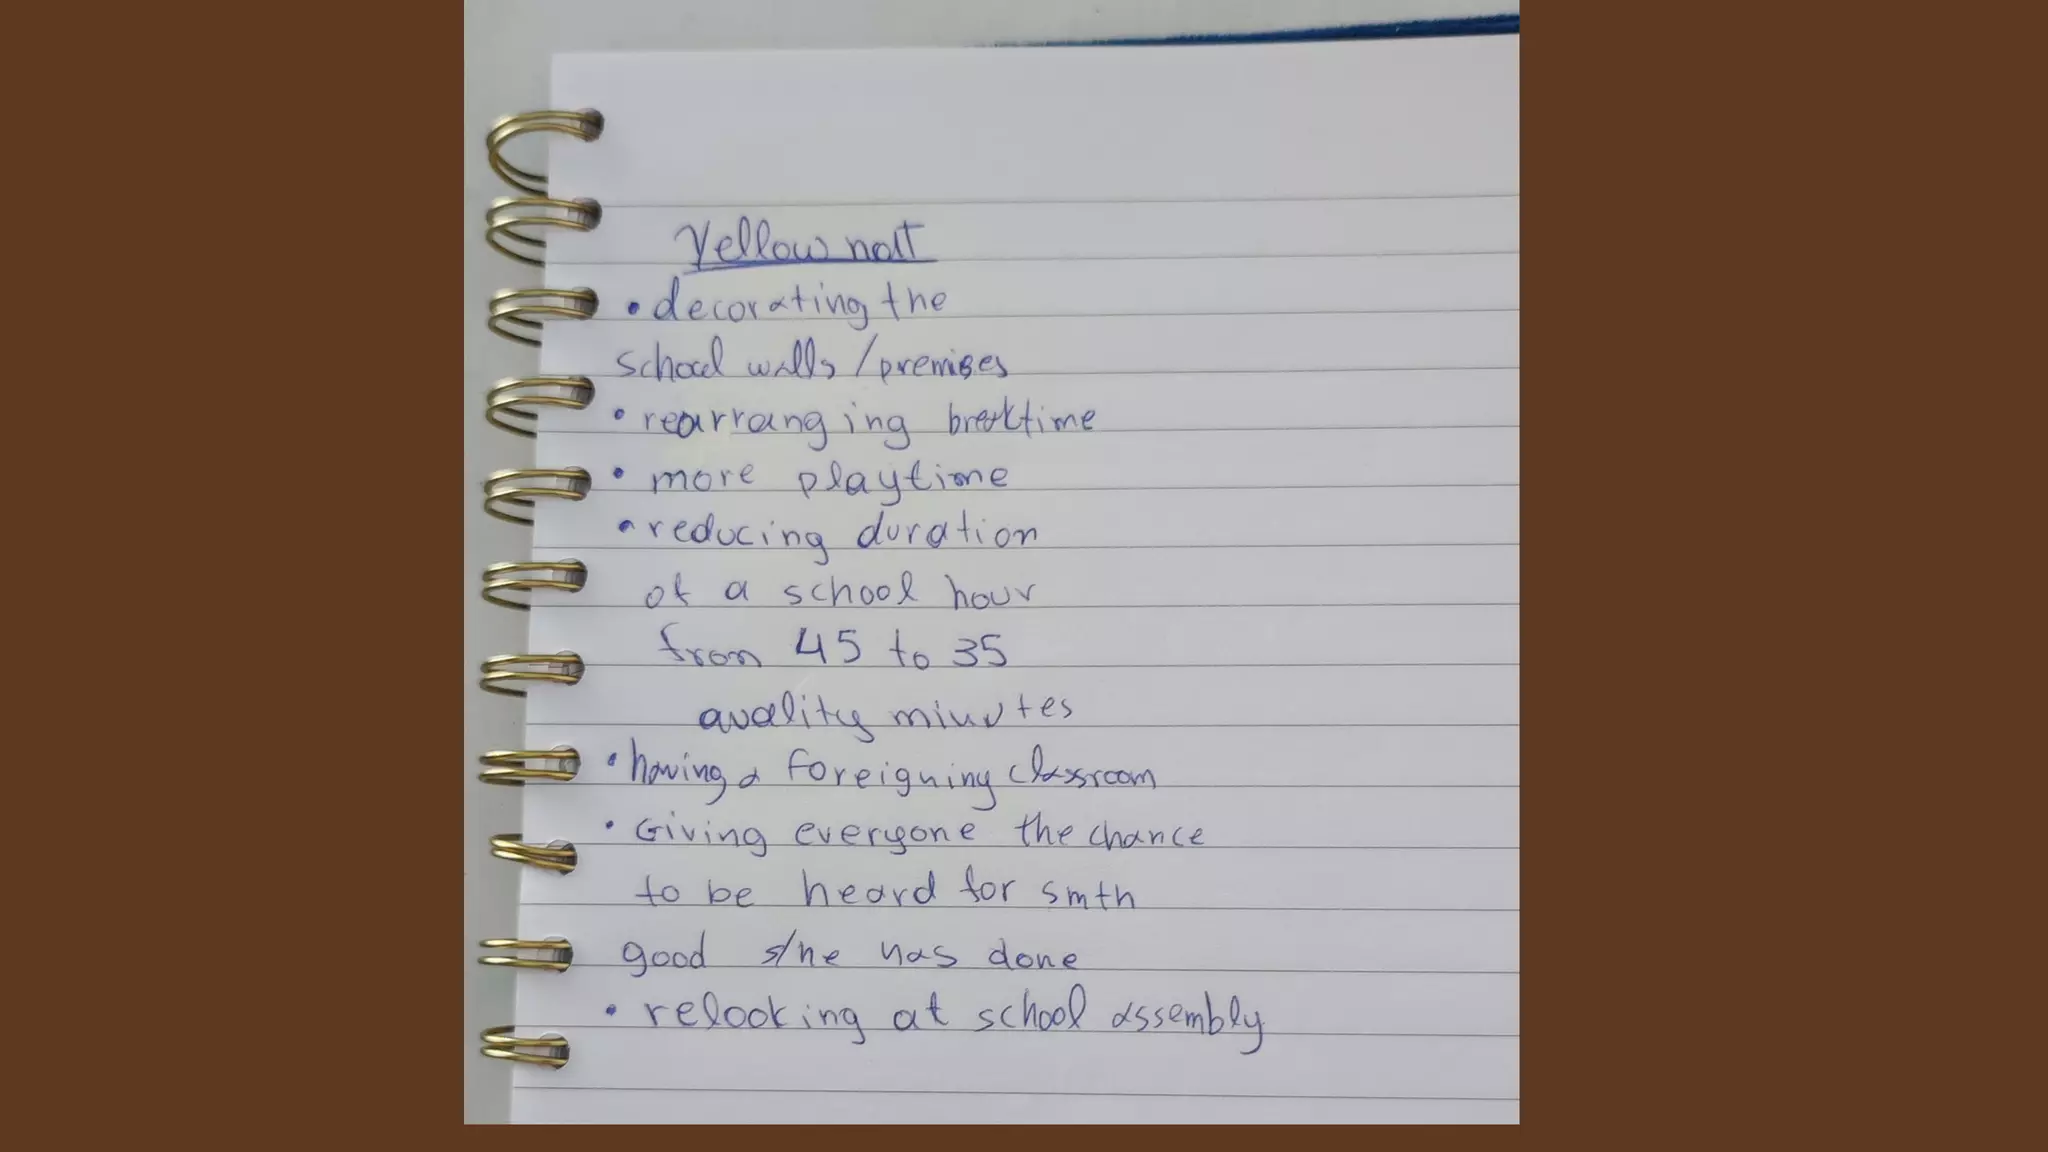 Yellow hat
• decorating the
school walls / premises
• rearranging breaktime
• more playtime
• reducing duration
of a school hour
from 45 to 35
quality minutes
• having a foreigning classroom
• Giving everyone the chance
to be heard for smth
good s/he has done
• relooking at school assembly